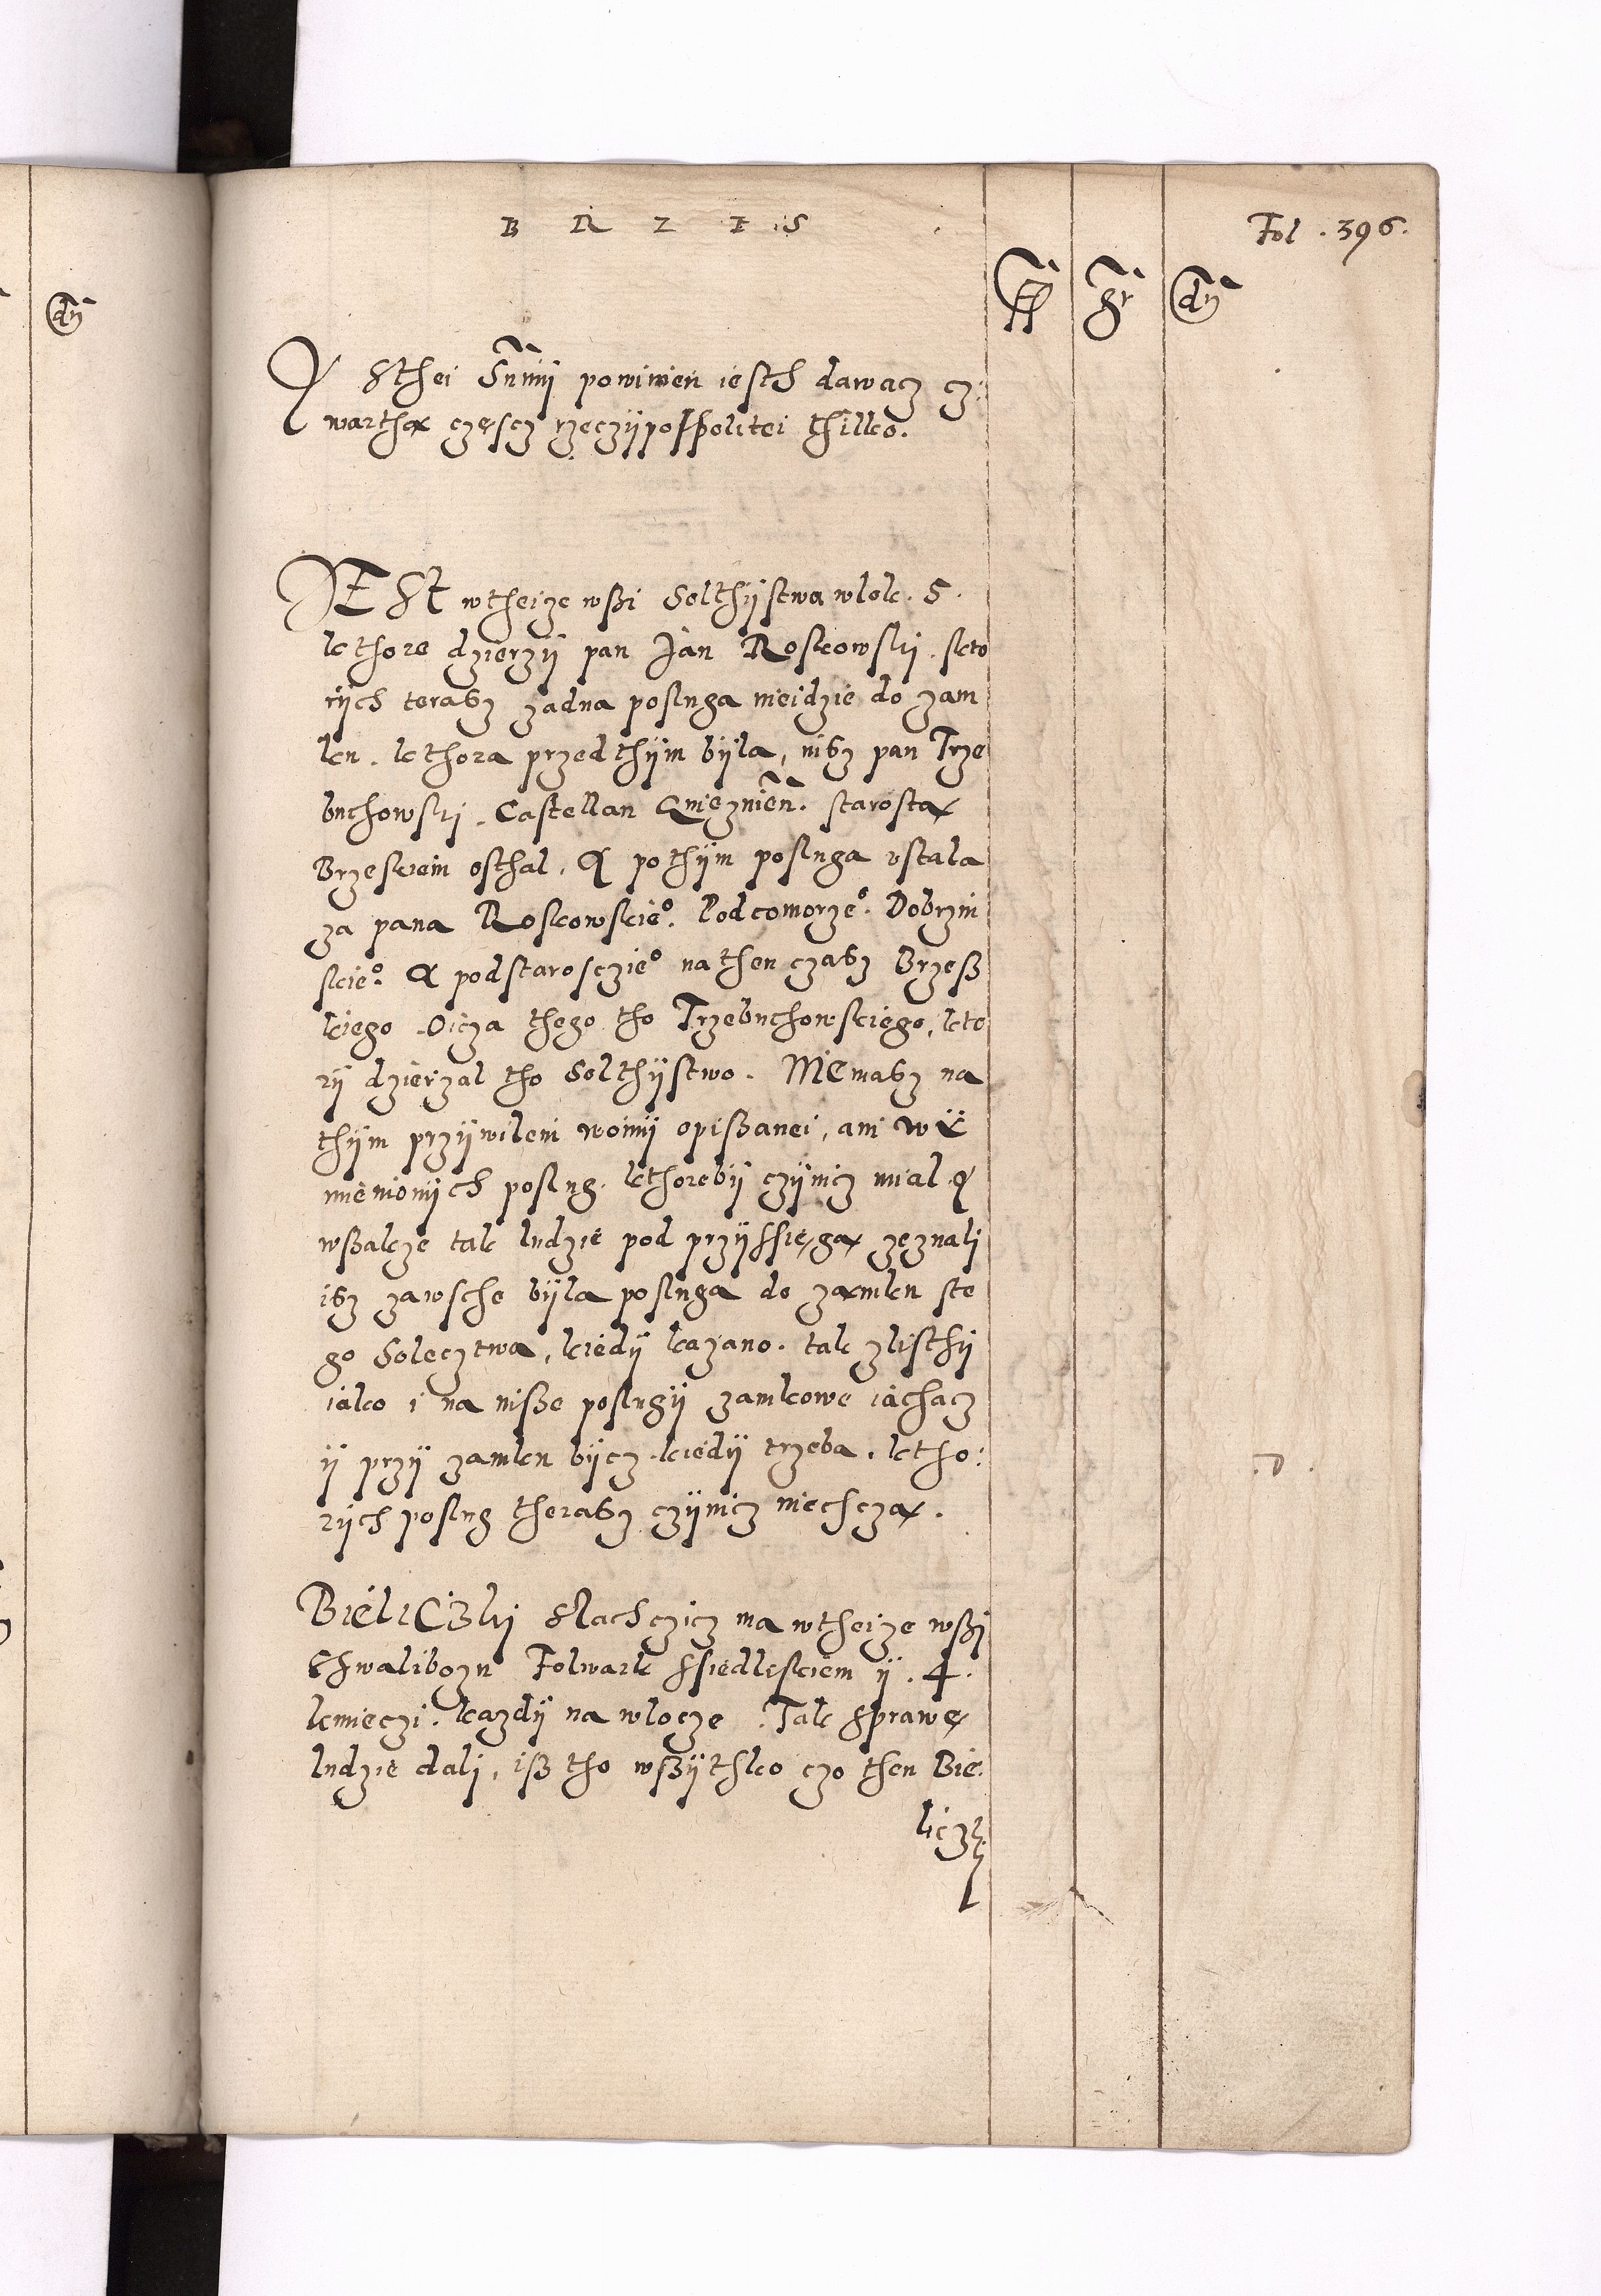 B R Z E S
Fol . 396.
ff gr dn
dn
A Sthei Summy powinien iesth dawacz cz:
wartha częscz rzeczÿpospolitei thilko.
IESt wtheize wßi Solthÿstwa wlok . 5 .
kthore dzierzÿ pan Jan Roskowski . skto
rÿch terasz zadna posluga nieidzie do zam
ku . kthora przedthÿm bÿla, nisz pan Trze
buchowski . Castellan Gniezniēn. starostą
Brzeskiem osthal . A pothÿm posluga vstala
za pana Roskowskie°. Podcomorze°. Dobrzin
skie°. A podstarosczie° na then czasz Brzeß
kiego . Oicza thego tho Trzebuchowskiego, kto
rÿ dzierzal tho Solthÿstwo . NIEmasz na
thÿm przÿwileiu woinÿ opißanei, ani wÿ
mienionÿch poslug . kthorebÿ czÿnicz mial. A
wßakze tak ludzie pod przÿssięgą zeznali
isz zawsche bÿla posluga do zamku ste
go Solecztwa, kiedÿ kazano . tak zlisthÿ
iako i na niße poslugÿ zamkowe iachacz
ÿ przÿ zamku bÿcz . kiedÿ trzeba . ktho:
rÿch poslug therasz czÿnicz niechczą .
. D .
BIELICZki Slachczicz ma wtheize wßi
Chwalibogu Folwark ssiedliskiem ÿ . 4 .
kmieczi . kazdÿ na wlocze . Tak sprawę
ludzie dali, iß tho wßÿthko czo then Bie:
liczki